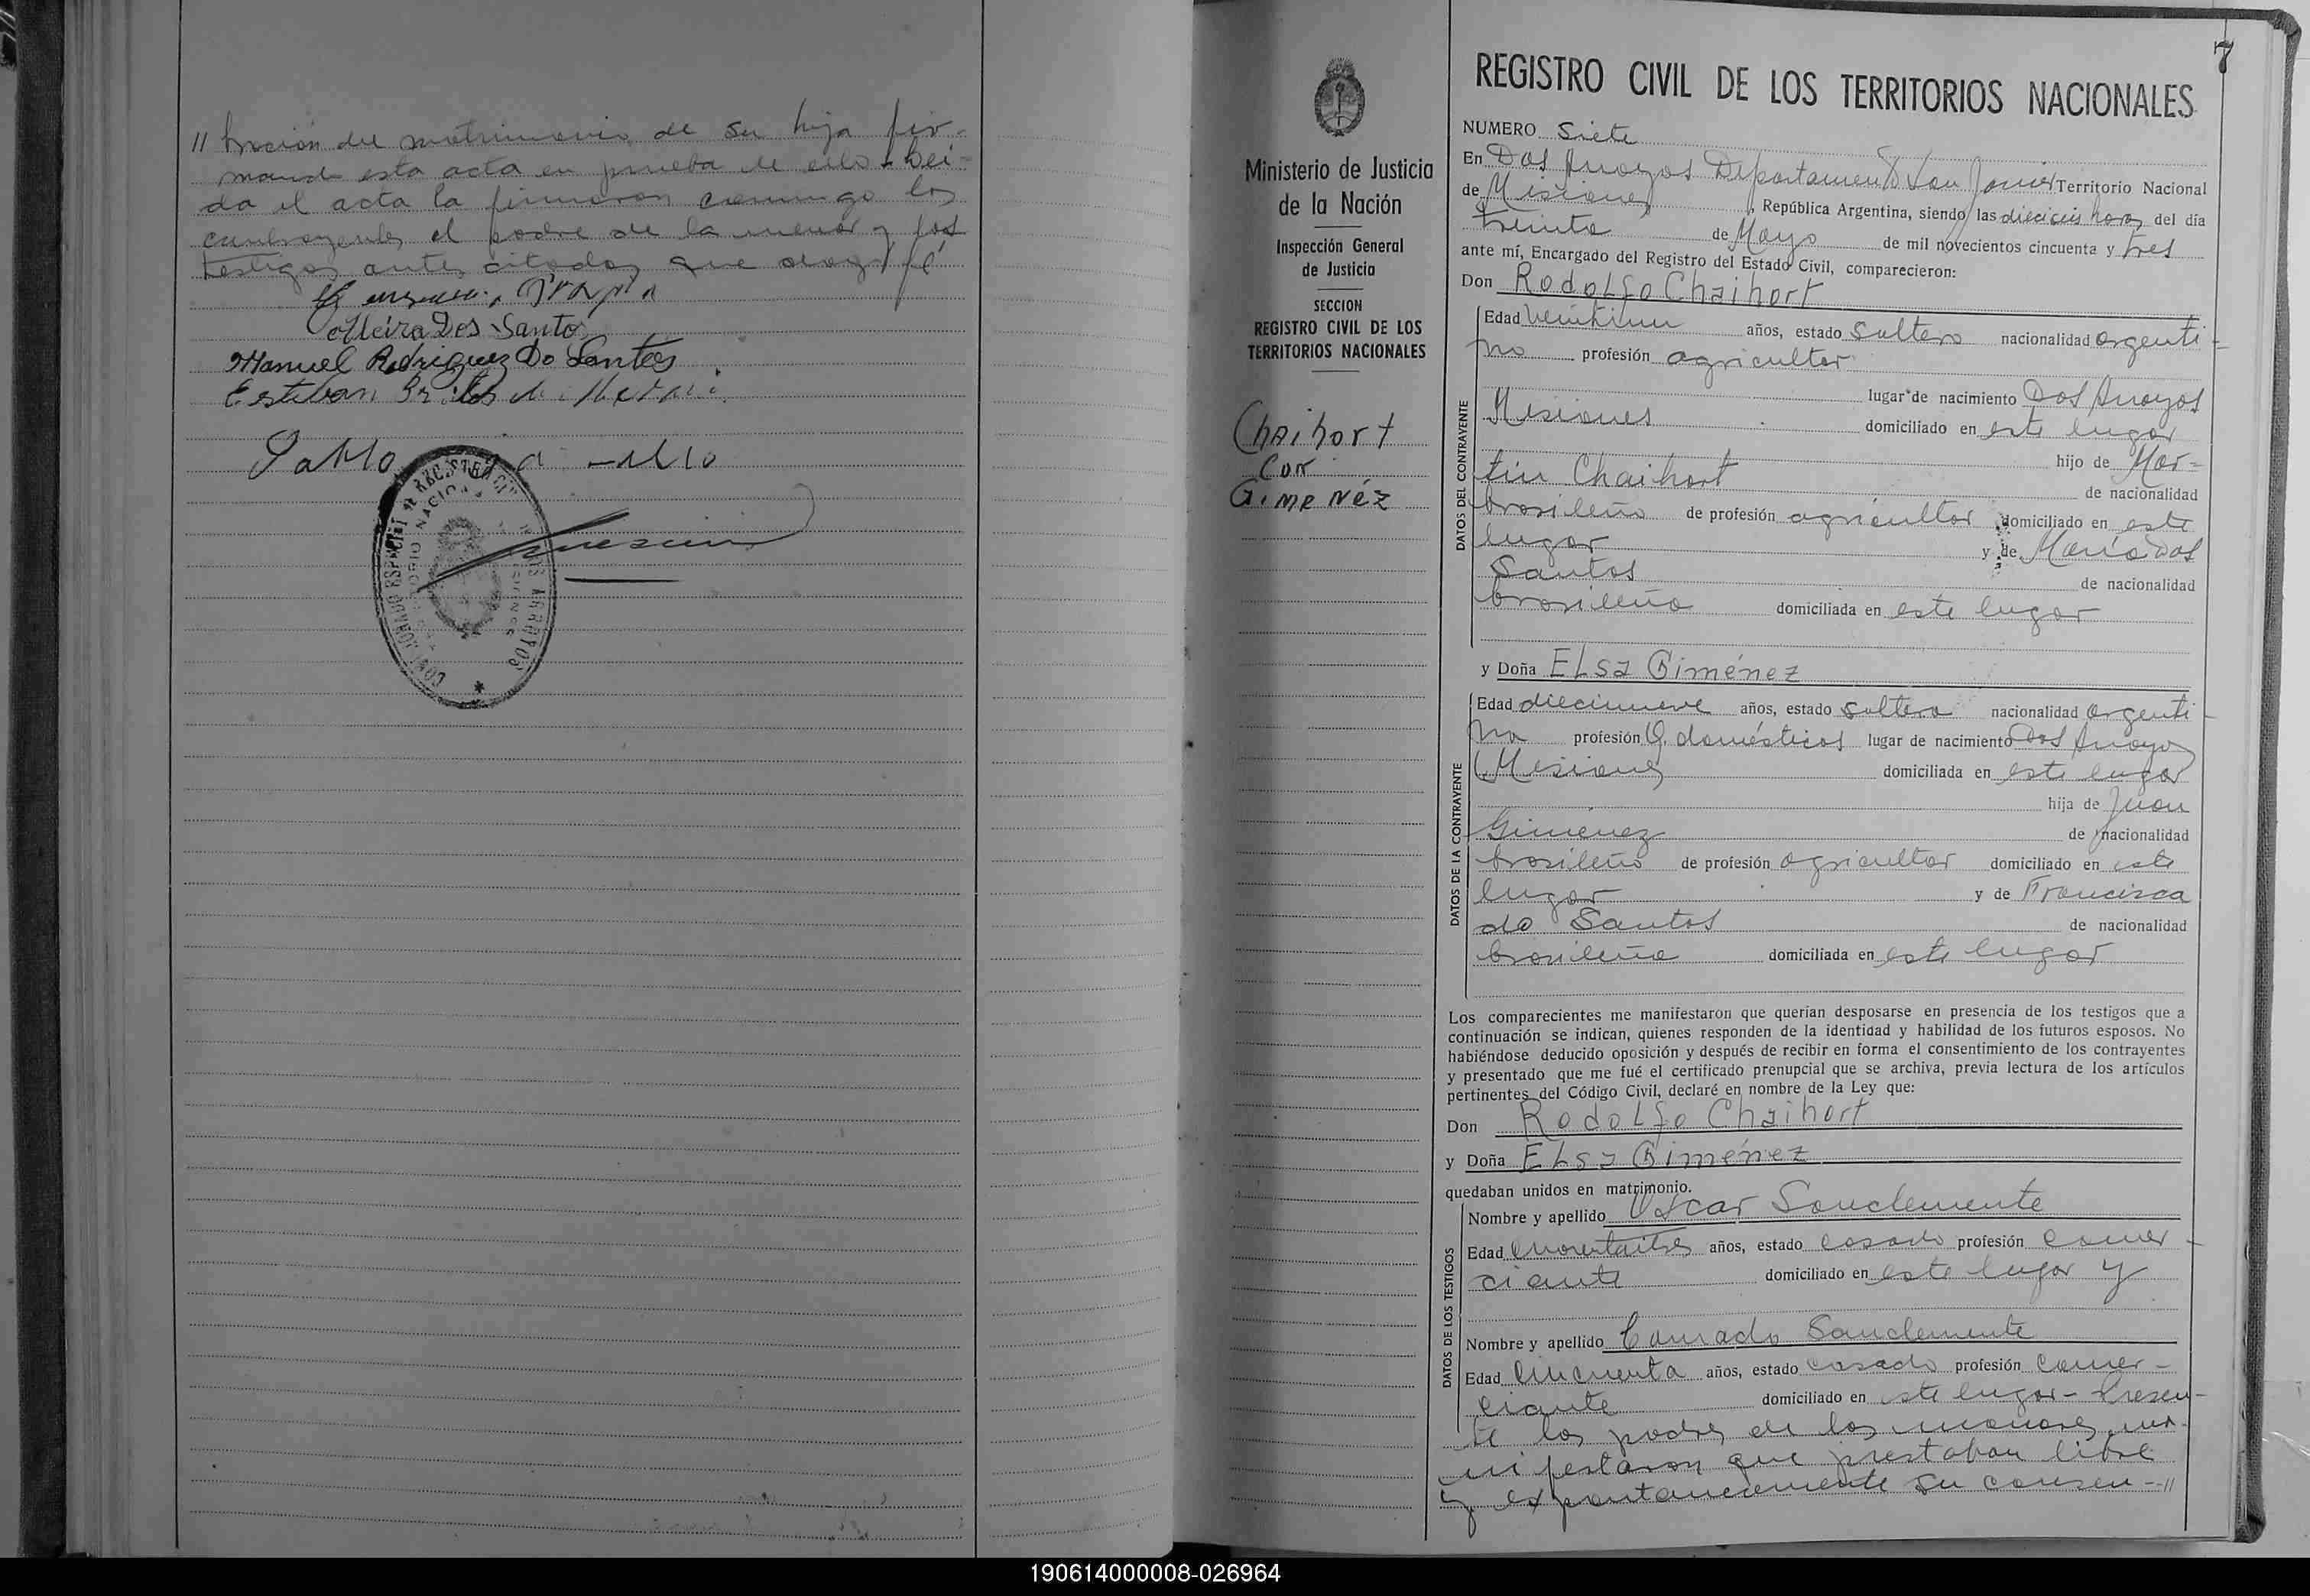 // bración del matrimonio de su hija fir-
mando esta acta en prueba de ello. Lei-
da el acta la firmaron conmigo los
contrayentes el padre de la menor y los
testigos antes citados que doy fé
Dos Santo
Manuel Rodriguez Do Santos
Esteban
Pablo
7
REGISTRO CIVIL DE LOS TERRITORIOS NACIONALES
Ministerio de Justicia
de la Nación
Inspección General
de Justicia
SECCION
REGISTRO CIVIL DE LOS
TERRITORIOS NACIONALES
Chaihort
con
Gimenéz
NUMERO Siete
En Dos Arroyos Departamento San Javier Territorio Nacional
de Misiones, República Argentina, siendo las dieciseis horas del día
treinta de Mayo de mil novecientos cincuenta y tres
ante mí, Encargado del Registro del Estado Civil, comparecieron:
Don Rodolfo Chaihort
DATOS DEL CONTRAYENTE
Edad veintiun años, estado soltero nacionalidad argenti-
no profesión agricultor
lugar de nacimiento Dos Arroyos
Misiones domiciliado en este lugar
hijo de Mar-
tin Chaihort de nacionalidad
brasileño de profesión agricultor domiciliado en este
lugar y de María Dos
Santos de nacionalidad
brasileña domiciliada en este lugar
y Doña Elsa Giménez
DATOS DE LA CONTRAYENTE
Edad diecinueve años, estado soltera nacionalidad argenti-
na profesión Q. domésticos lugar de nacimiento Dos Arroyos
Misiones domiciliada en este lugar
hija de Juan
Gimenez de nacionalidad
brasileño de profesión agricultor domiciliado en este
lugar y de Francisca
do Santos de nacionalidad
brasileña domiciliada en este lugar
Los comparecientes me manifestaron que querían desposarse en presencia de los testigos que a
continuación se indican, quienes responden de la identidad y habilidad de los futuros esposos. No
habiéndose deducido oposición y después de recibir en forma el consentimiento de los contrayentes
y presentado que me fué el certificado prenupcial que se archiva, previa lectura de los artículos
pertinentes del Código Civil, declaré en nombre de la Ley que:
Don Rodolfo Chaihort
y Doña Elsa Giménez
quedaban unidos en matrimonio.
DATOS DE LOS TESTIGOS
Nombre y apellido Oscar Sanclemente
Edad cuarentaitres años, estado casado profesión comer-
ciante domiciliado en este lugar y
Nombre y apellido Conrado Sanclemente
Edad cincuenta años, estado casado profesión comer-
ciante domiciliado en este lugar - Presen-
te los padres de los menores ma-
nifestaron que prestaban libre
y expontaneamente su consen-//
190614000008-026964